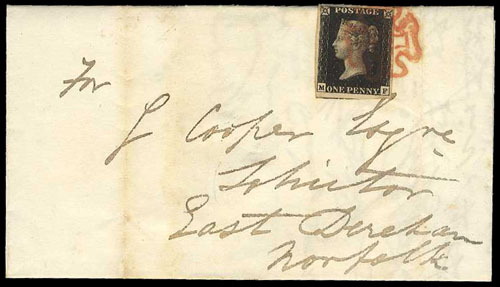 POSTAGE
M F
ONE PENNY
For
G Cooper Esqre
Solicitor
East Dereham
Norfolk